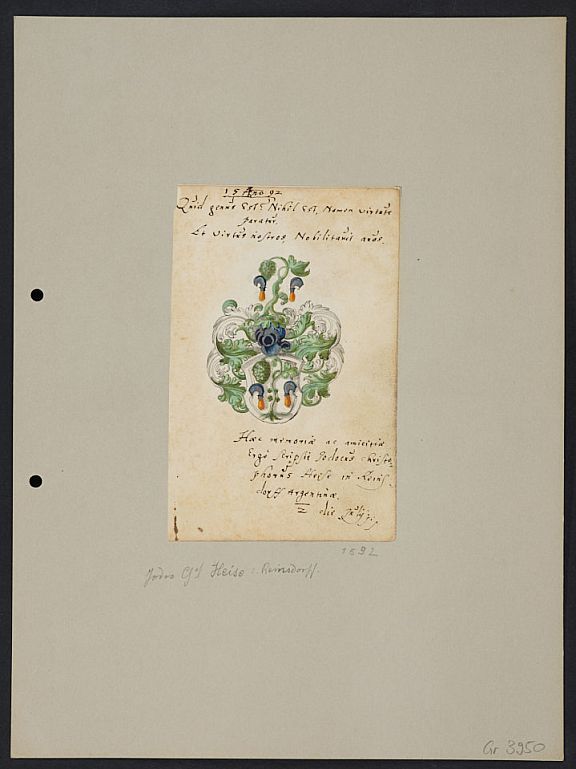 15 Ano 92
Quid genus est? Nihil est, Nomen virtute
paratur.
Et virtus nostros Nobilitavit avos.
Hæc memoriæ ac amicitiæ
Ergo scripsit Jodocus Christo-
phorus Heise in Reins-
dorff Argentinæ.
2 die
1592
Jodoc Heise : Reinsdorff.
Gr 3950